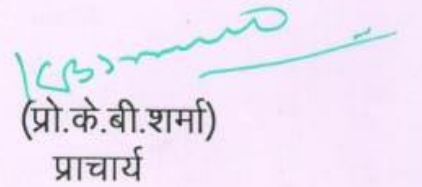 (प्रो.के.बी.शर्मा)
प्राचार्य